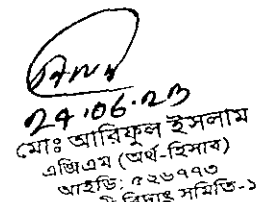 24.06.23
মোঃ আরিফুল ইসলাম
এজিএম (অর্থ-হিসাব)
আইডি: ৫২৬৭৭৩
বিদ্যুৎ সমিতি-১